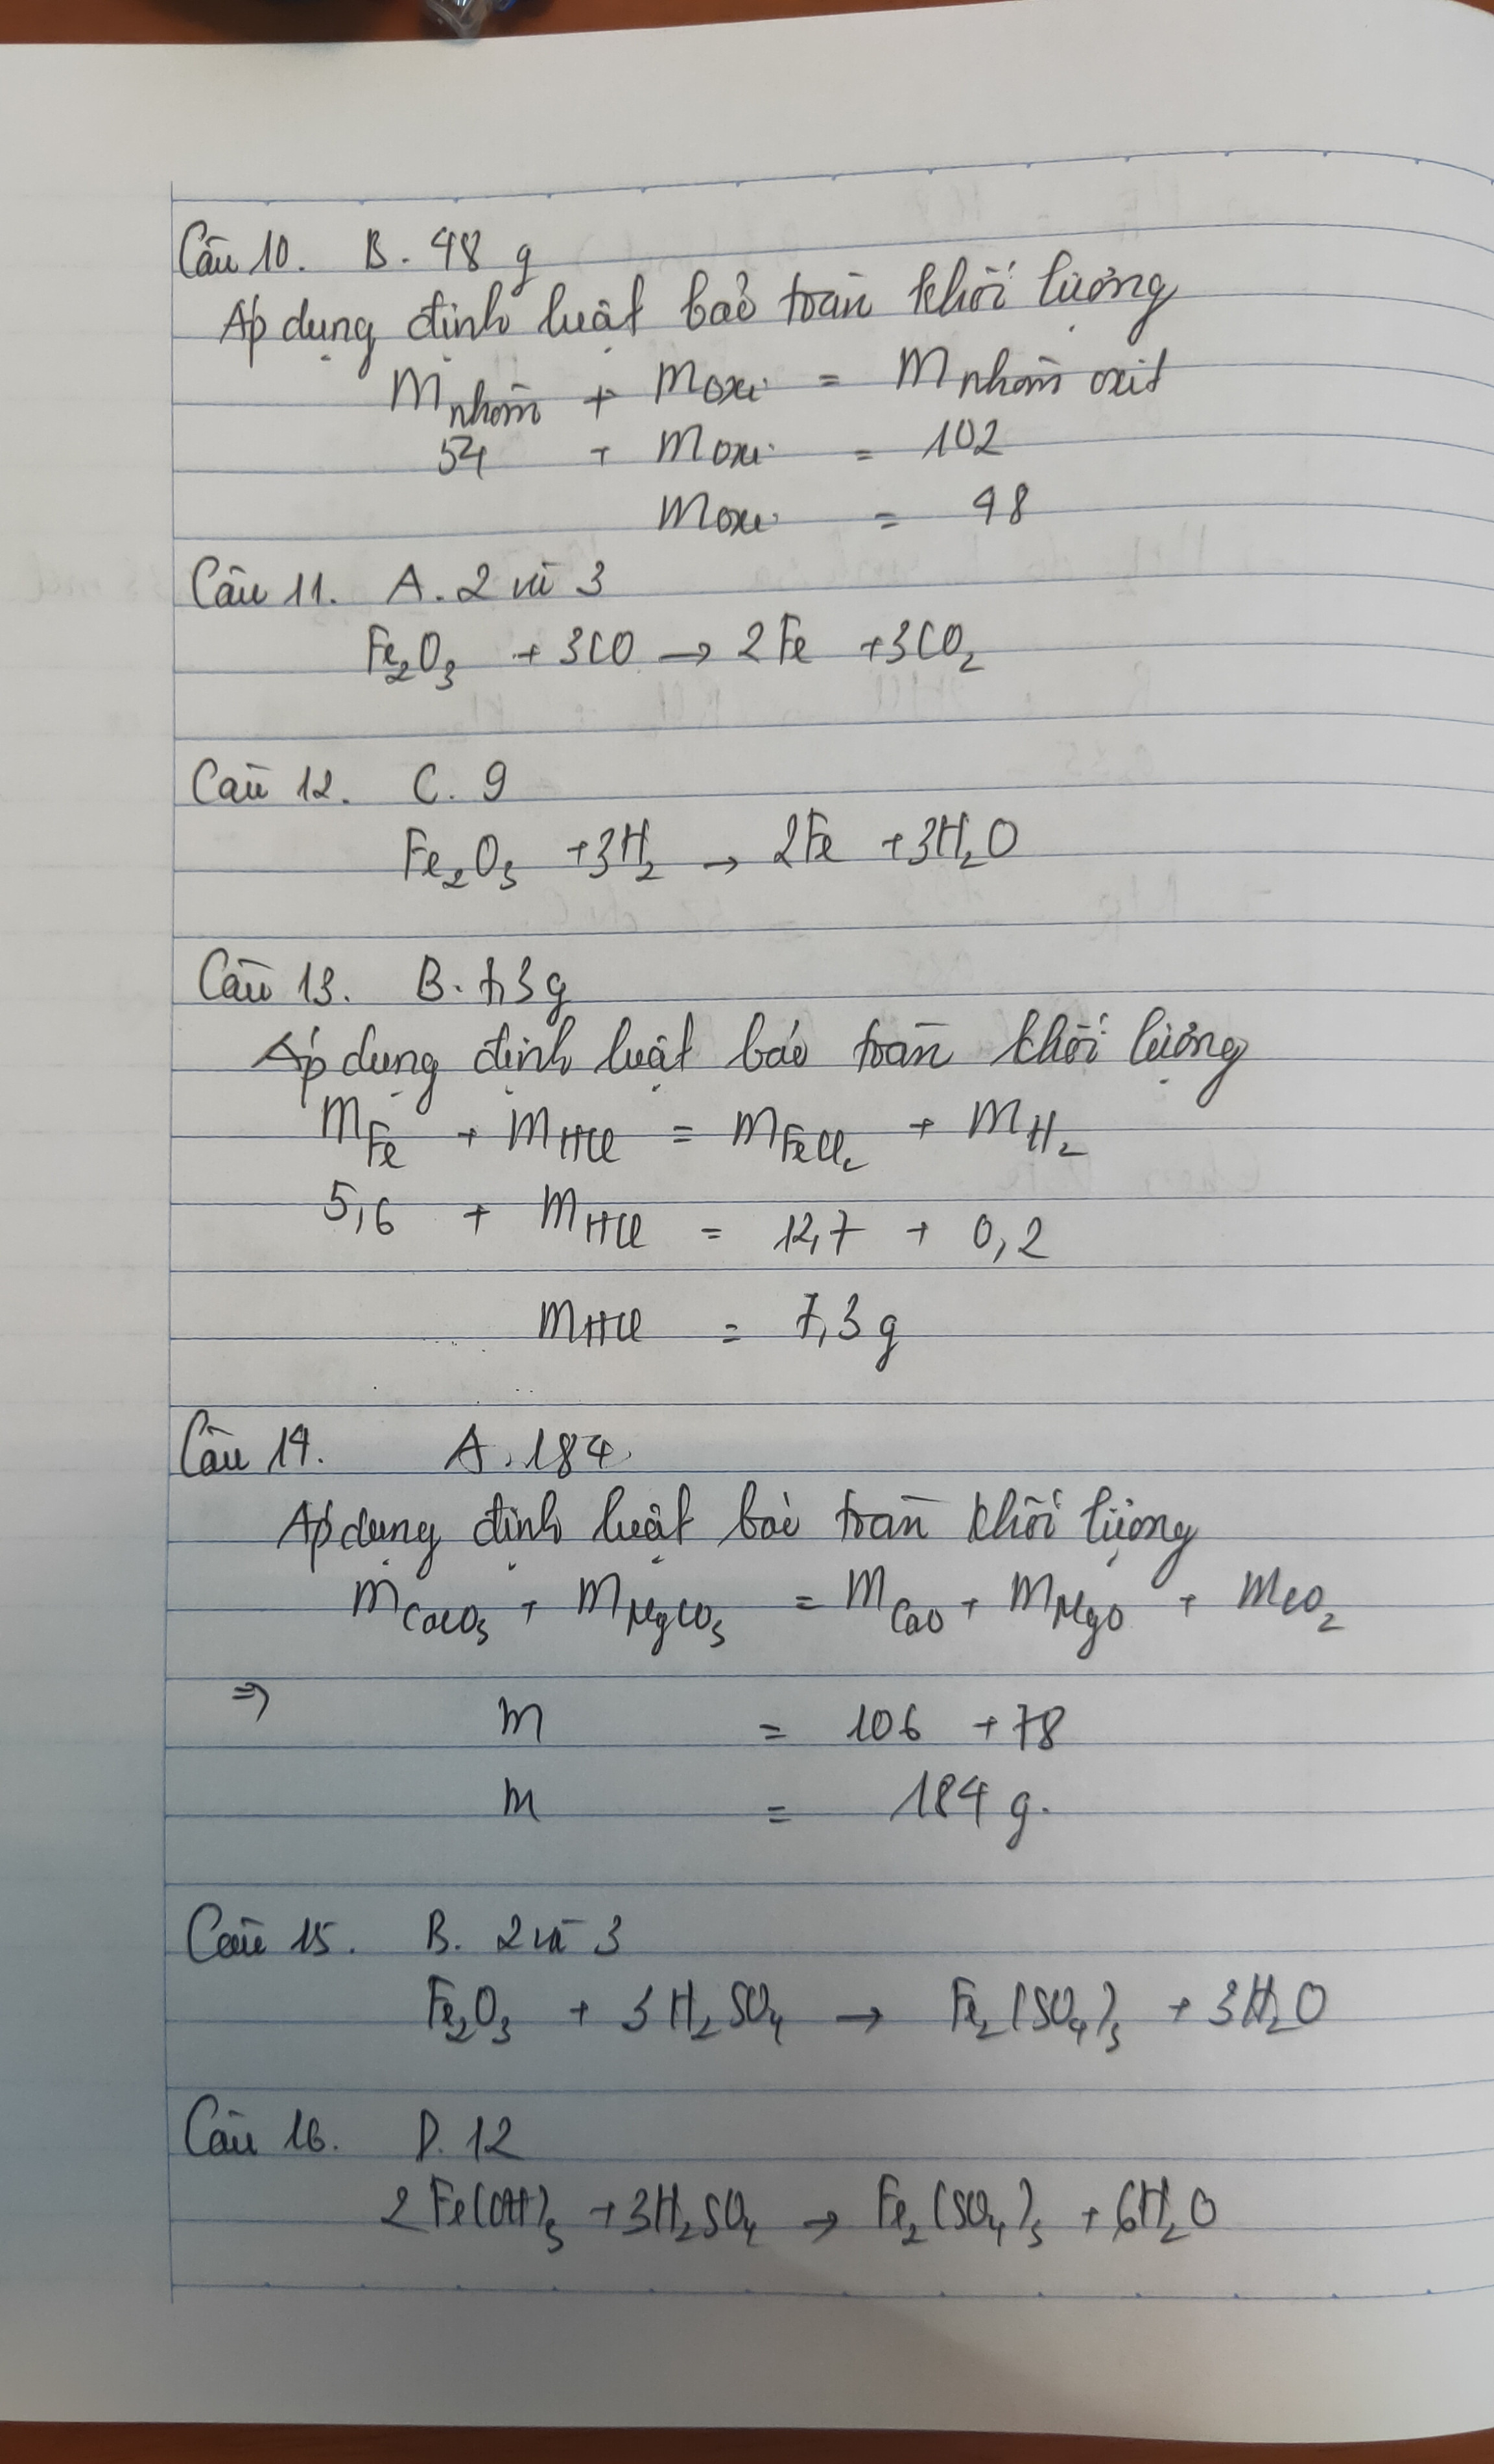 Câu 10. B. 48 g
Áp dụng định luật bảo toàn khối lượng
m nhôm + m oxi = m nhôm oxit
54 + m oxi = 102
m oxi = 48
Câu 11. A. 2 và 3
Fe₂O₃ + 3CO → 2Fe + 3CO₂
Câu 12. C. 9
Fe₂O₃ + 3H₂ → 2Fe + 3H₂O
Câu 13. B. 7,3g
Áp dụng định luật bảo toàn khối lượng
m Fe + m HCl = m FeCl₂ + m H₂
5,6 + m HCl = 12,7 + 0,2
m HCl = 7,3 g
Câu 14. A. 184
Áp dụng định luật bảo toàn khối lượng
m CaCO₃ + m MgCO₃ = m CaO + m MgO + m CO₂
⇒ m = 106 + 78
m = 184 g.
Câu 15. B. 2 và 3
Fe₂O₃ + 3H₂SO₄ → Fe₂(SO₄)₃ + 3H₂O
Câu 16. D. 12
2Fe(OH)₃ + 3H₂SO₄ → Fe₂(SO₄)₃ + 6H₂O